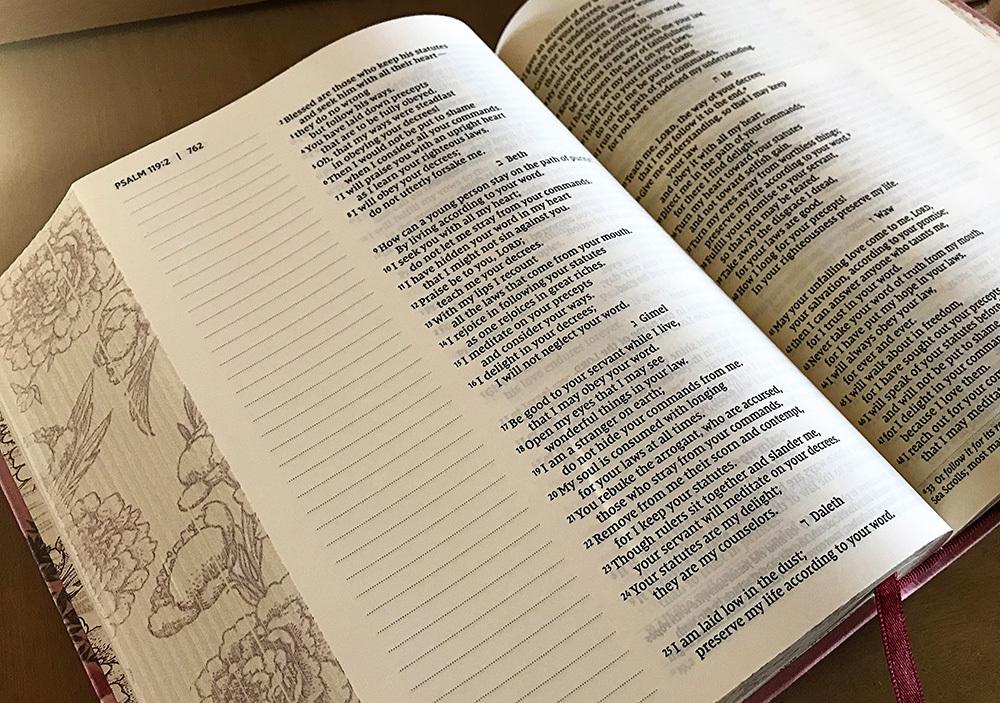 PSALM 119:2 | 762
2 Blessed are those who keep his statutes
and seek him with all their heart—
3 they do no wrong
but follow his ways.
4 You have laid down precepts
that are to be fully obeyed.
5 Oh, that my ways were steadfast
in obeying your decrees!
6 Then I would not be put to shame
when I consider all your commands.
7 I will praise you with an upright heart
as I learn your righteous laws.
8 I will obey your decrees;
do not utterly forsake me.
ב Beth
9 How can a young person stay on the path of purity?
By living according to your word.
10 I seek you with all my heart;
do not let me stray from your commands.
11 I have hidden your word in my heart
that I might not sin against you.
12 Praise be to you, LORD;
teach me your decrees.
13 With my lips I recount
all the laws that come from your mouth.
14 I rejoice in following your statutes
as one rejoices in great riches.
15 I meditate on your precepts
and consider your ways.
16 I delight in your decrees;
I will not neglect your word.
ג Gimel
17 Be good to your servant while I live,
that I may obey your word.
18 Open my eyes that I may see
wonderful things in your law.
19 I am a stranger on earth;
do not hide your commands from me.
20 My soul is consumed with longing
for your laws at all times.
21 You rebuke the arrogant, who are accursed,
those who stray from your commands.
22 Remove from me their scorn and contempt,
for I keep your statutes.
23 Though rulers sit together and slander me,
your servant will meditate on your decrees.
24 Your statutes are my delight;
they are my counselors.
ד Daleth
25 I am laid low in the dust;
preserve my life according to your word.
for you have broadened my understanding.
ה He
me, LORD, the way of your decrees,
that I may follow it to the end.
understanding, so that I may keep
your law
and obey it with all my heart.
me in the path of your commands,
for there I find delight.
my heart toward your statutes
and not toward selfish gain.
my eyes away from worthless things;
preserve my life according to your word.
Fulfill your promise to your servant,
so that you may be feared.
Take away the disgrace I dread,
for your laws are good.
How I long for your precepts!
In your righteousness preserve my life.
ו Waw
41 May your unfailing love come to me, LORD,
your salvation, according to your promise;
then I can answer anyone who taunts me,
for I trust in your word.
Never take your word of truth from my mouth,
for I have put my hope in your laws.
I will always obey your law,
for ever and ever.
45 I will walk about in freedom,
for I have sought out your precepts
46 I will speak of your statutes before
and will not be put to shame
47 for I delight in your commands
because I love them.
48 I reach out for your
that I may
Or follow it for its
Sea Scrolls; most